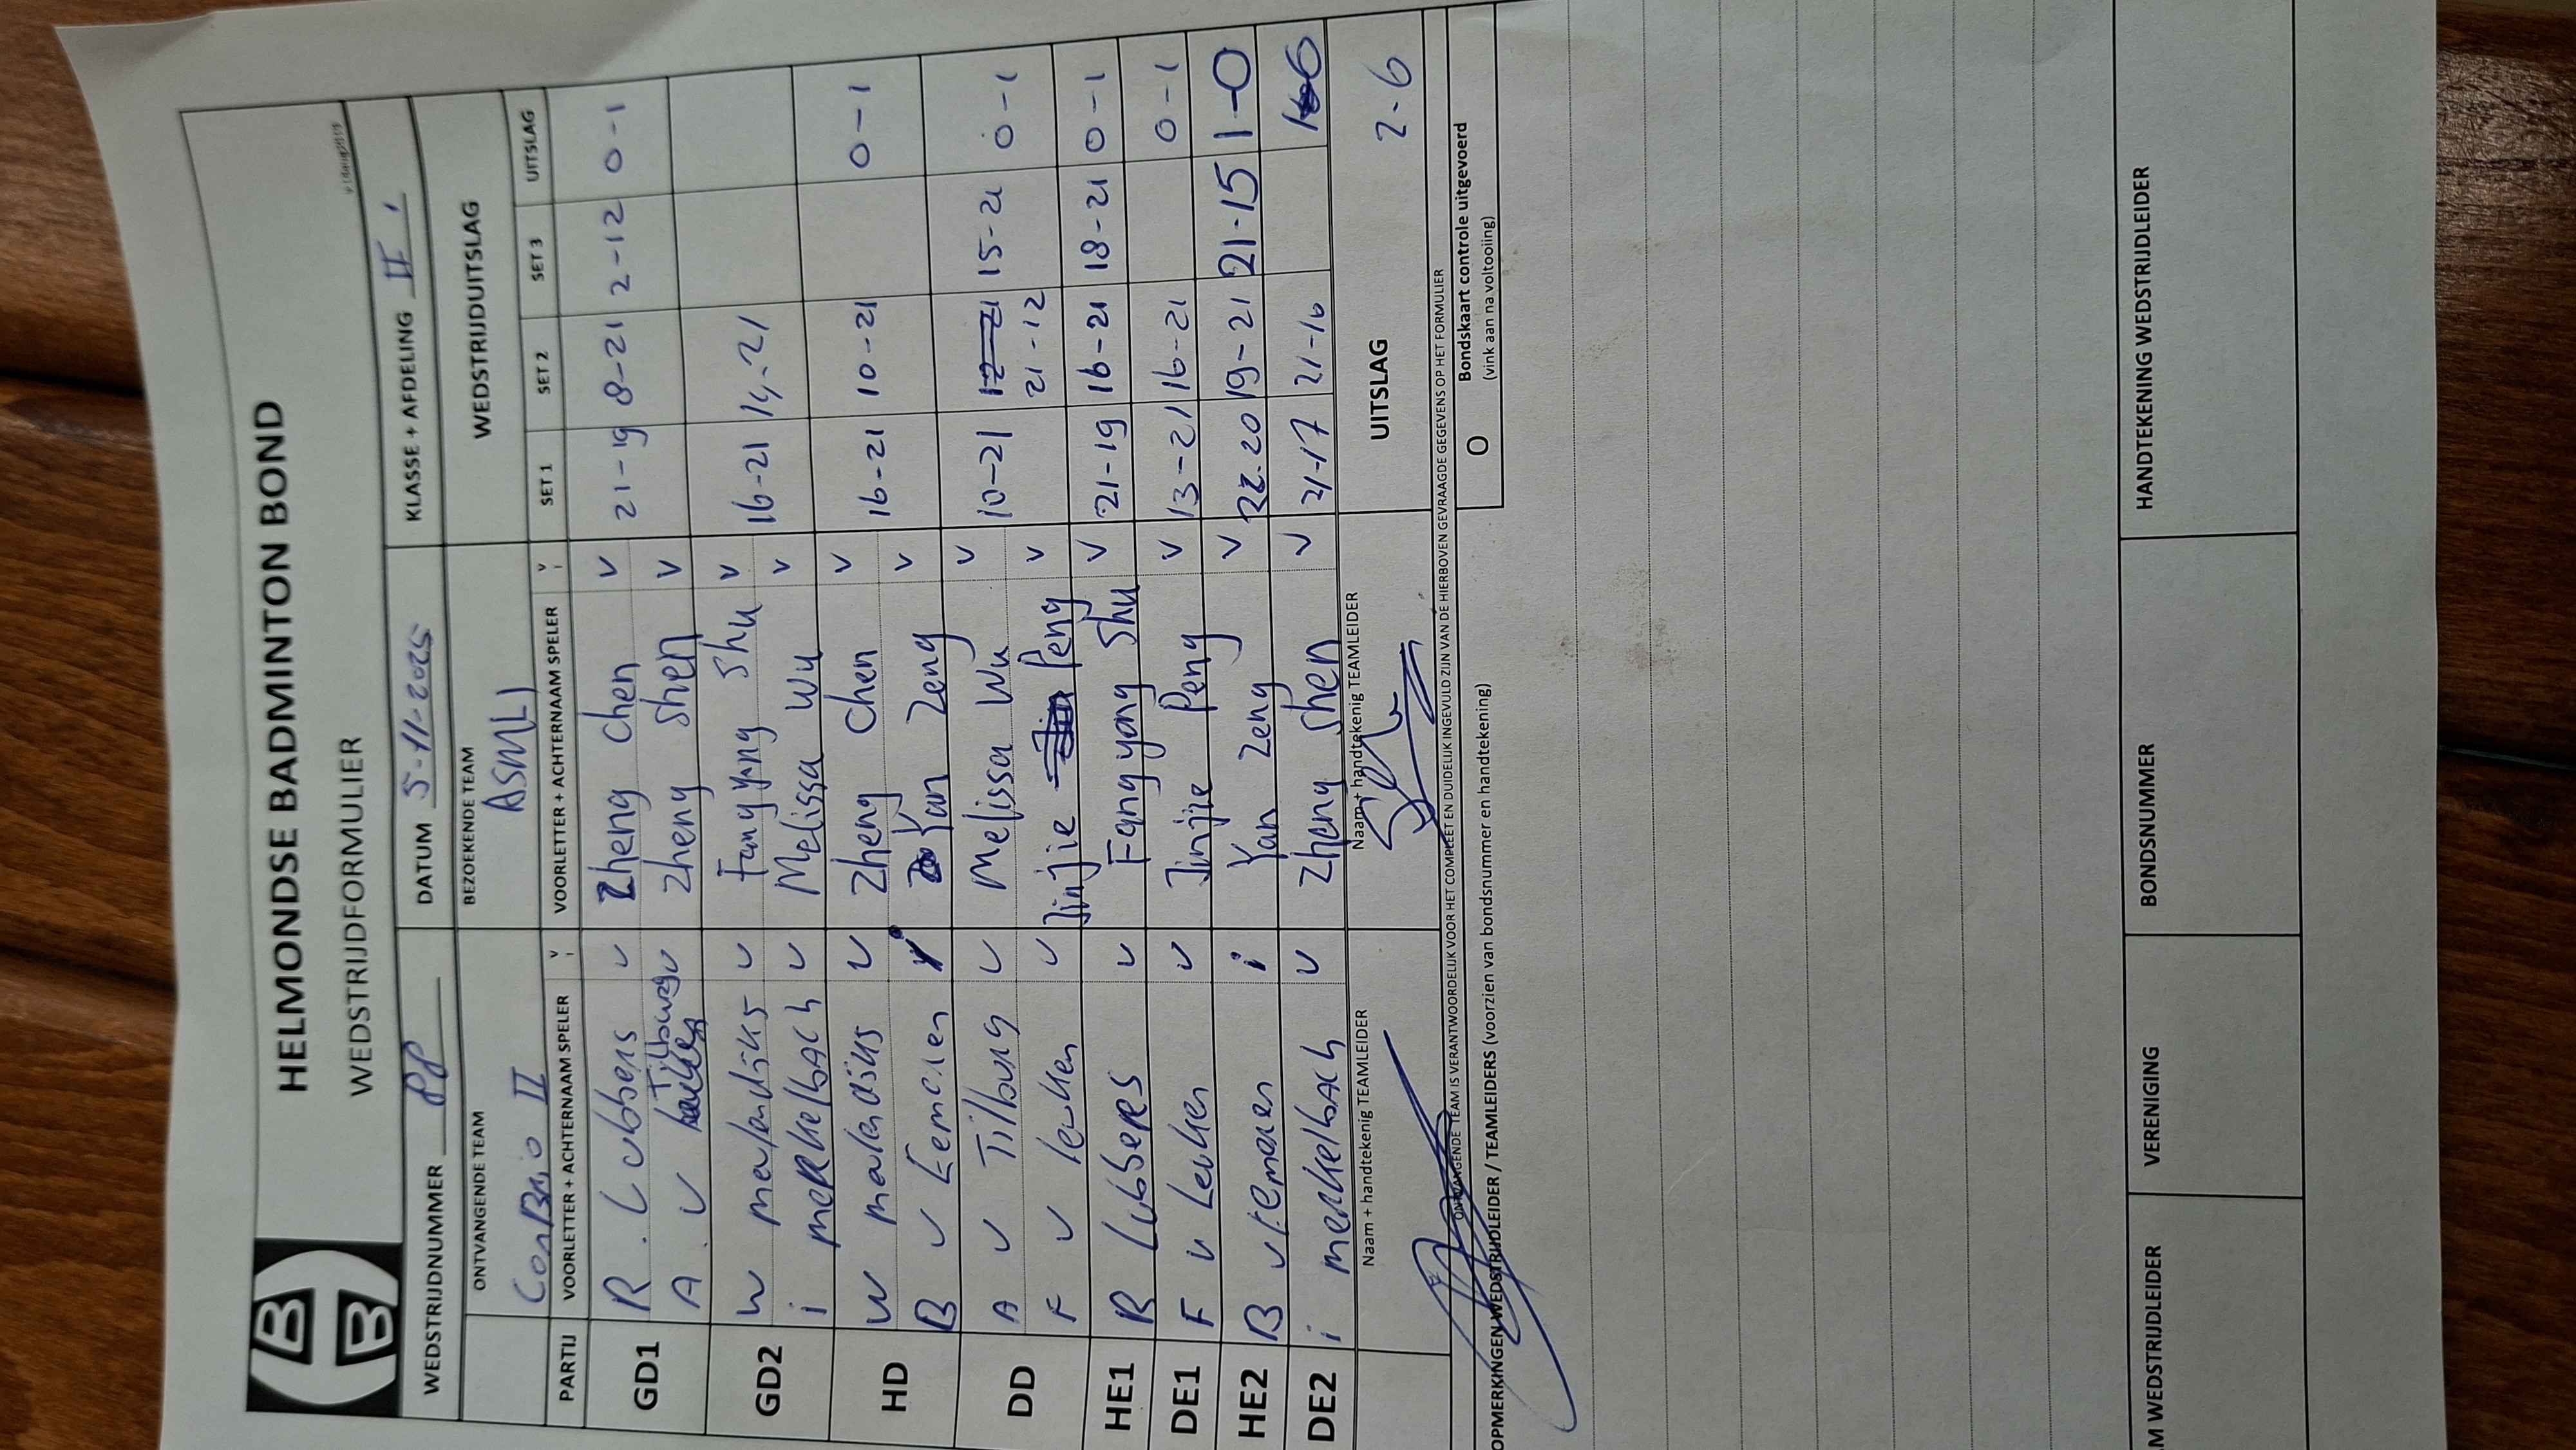 HELMONDSE BADMINTON BOND
WEDSTRIJDFORMULIER
WEDSTRIJDNUMMER PP DATUM 5-11-2025 KLASSE + AFDELING II
ONTVANGENDE TEAM BEZOEKENDE TEAM WEDSTRIJDUITSLAG
ConBrio II ASML 1
PARTIJ VOORLETTER + ACHTERNAAM SPELER V VOORLETTER + ACHTERNAAM SPELER V SET 1 SET 2 SET 3 UITSLAG
GD1 R. Lubbers v Zheng Chen v 21-19 8-21 2-12 0-1
A. v Tilburg v Zheng Shen v
GD2 W meulendijks v Fangyong Shu v 16-21 14-21
i merkelbach v Melissa Wu v
HD W meulendijks v Zheng Chen v 16-21 10-21 0-1
B v Eemeren Yan Zeng v
DD A v Tilburg v Melissa Wu v 10-21 15-21 0-1
F v leuken v Jinjie Peng v 21-12
HE1 R Lubbers v Fangyong Shu v 21-19 16-21 18-21 0-1
DE1 F v Leuken v Jinjie Peng v 13-21 16-21 0-1
HE2 B v Eemeren i Yan Zeng v 22-20 19-21 21-15 1-0
DE2 i merkelbach v Zheng Shen v 21-17 21-16
Naam + handtekenig TEAMLEIDER Naam + handtekenig TEAMLEIDER UITSLAG 2-6
ONTVANGENDE TEAM IS VERANTWOORDELIJK VOOR HET COMPLEET EN DUIDELIJK INGEVULD ZIJN VAN DE HIERBOVEN GEVRAAGDE GEGEVENS OP HET FORMULIER
OPMERKINGEN WEDSTRIJDLEIDER / TEAMLEIDERS (voorzien van bondsnummer en handtekening)
O Bondskaart controle uitgevoerd
(vink aan na voltooiing)
WEDSTRIJDLEIDER VERENIGING BONDSNUMMER HANDTEKENING WEDSTRIJDLEIDER